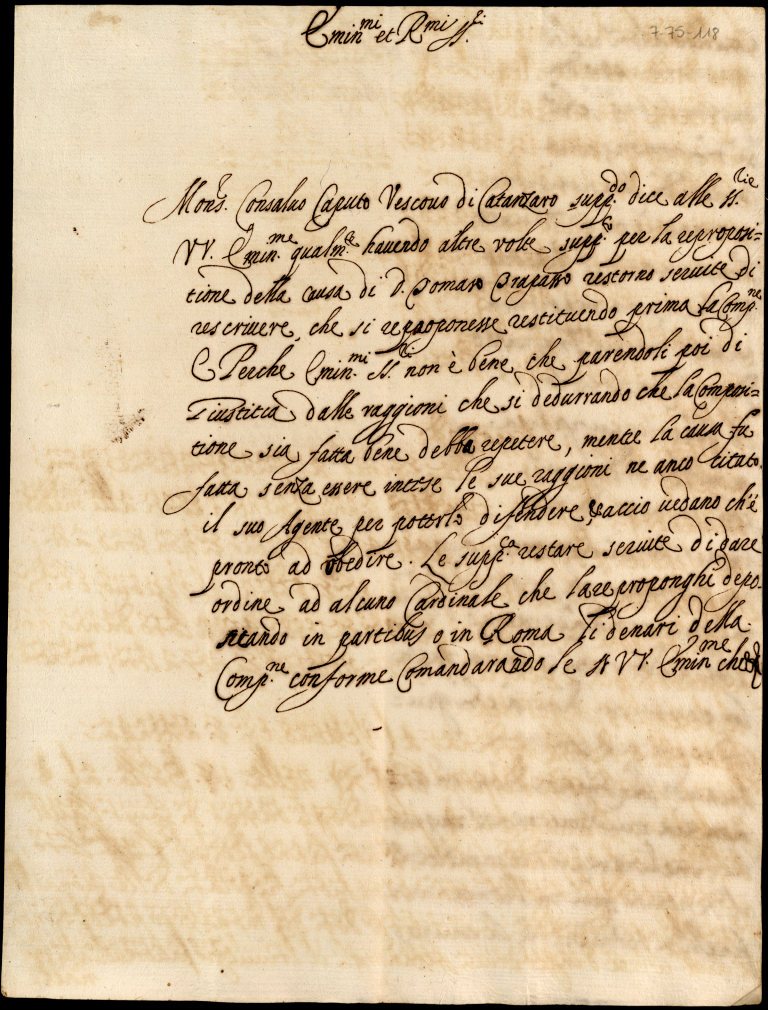 7-75-118
Emin.mi et R.mi SS.ri
Mons.r Consaluo Caputo Vescouo di Catanzaro supp.do dice alle SS.rie
VV. Emin.me qualm.te hauendo altre volte supp.to per la reproposi=
tione della causa di D. Tomaso restorno seruite di
rescriuere, che si reproponesse restituendo prima la Comp.ne
E Perche Emin.mi SS.ri non è bene che parendoli poi di
Giustitia dalle raggioni che si dedurrando che la Composi=
tione sia fatta bene debba repetere, mentre la causa fu
fatta senza essere intese le sue raggioni ne anco citato
il suo Agente per poterlo difendere, acciò uedano ch'è
pronto ad obedire. Le supp.ca restare seruite di dare
ordine ad alcuno Cardinale che la reproponghi depo-
sitando in partibus o in Roma li denari della
Comp.ne conforme Comandarando le SS VV. Emin.me che